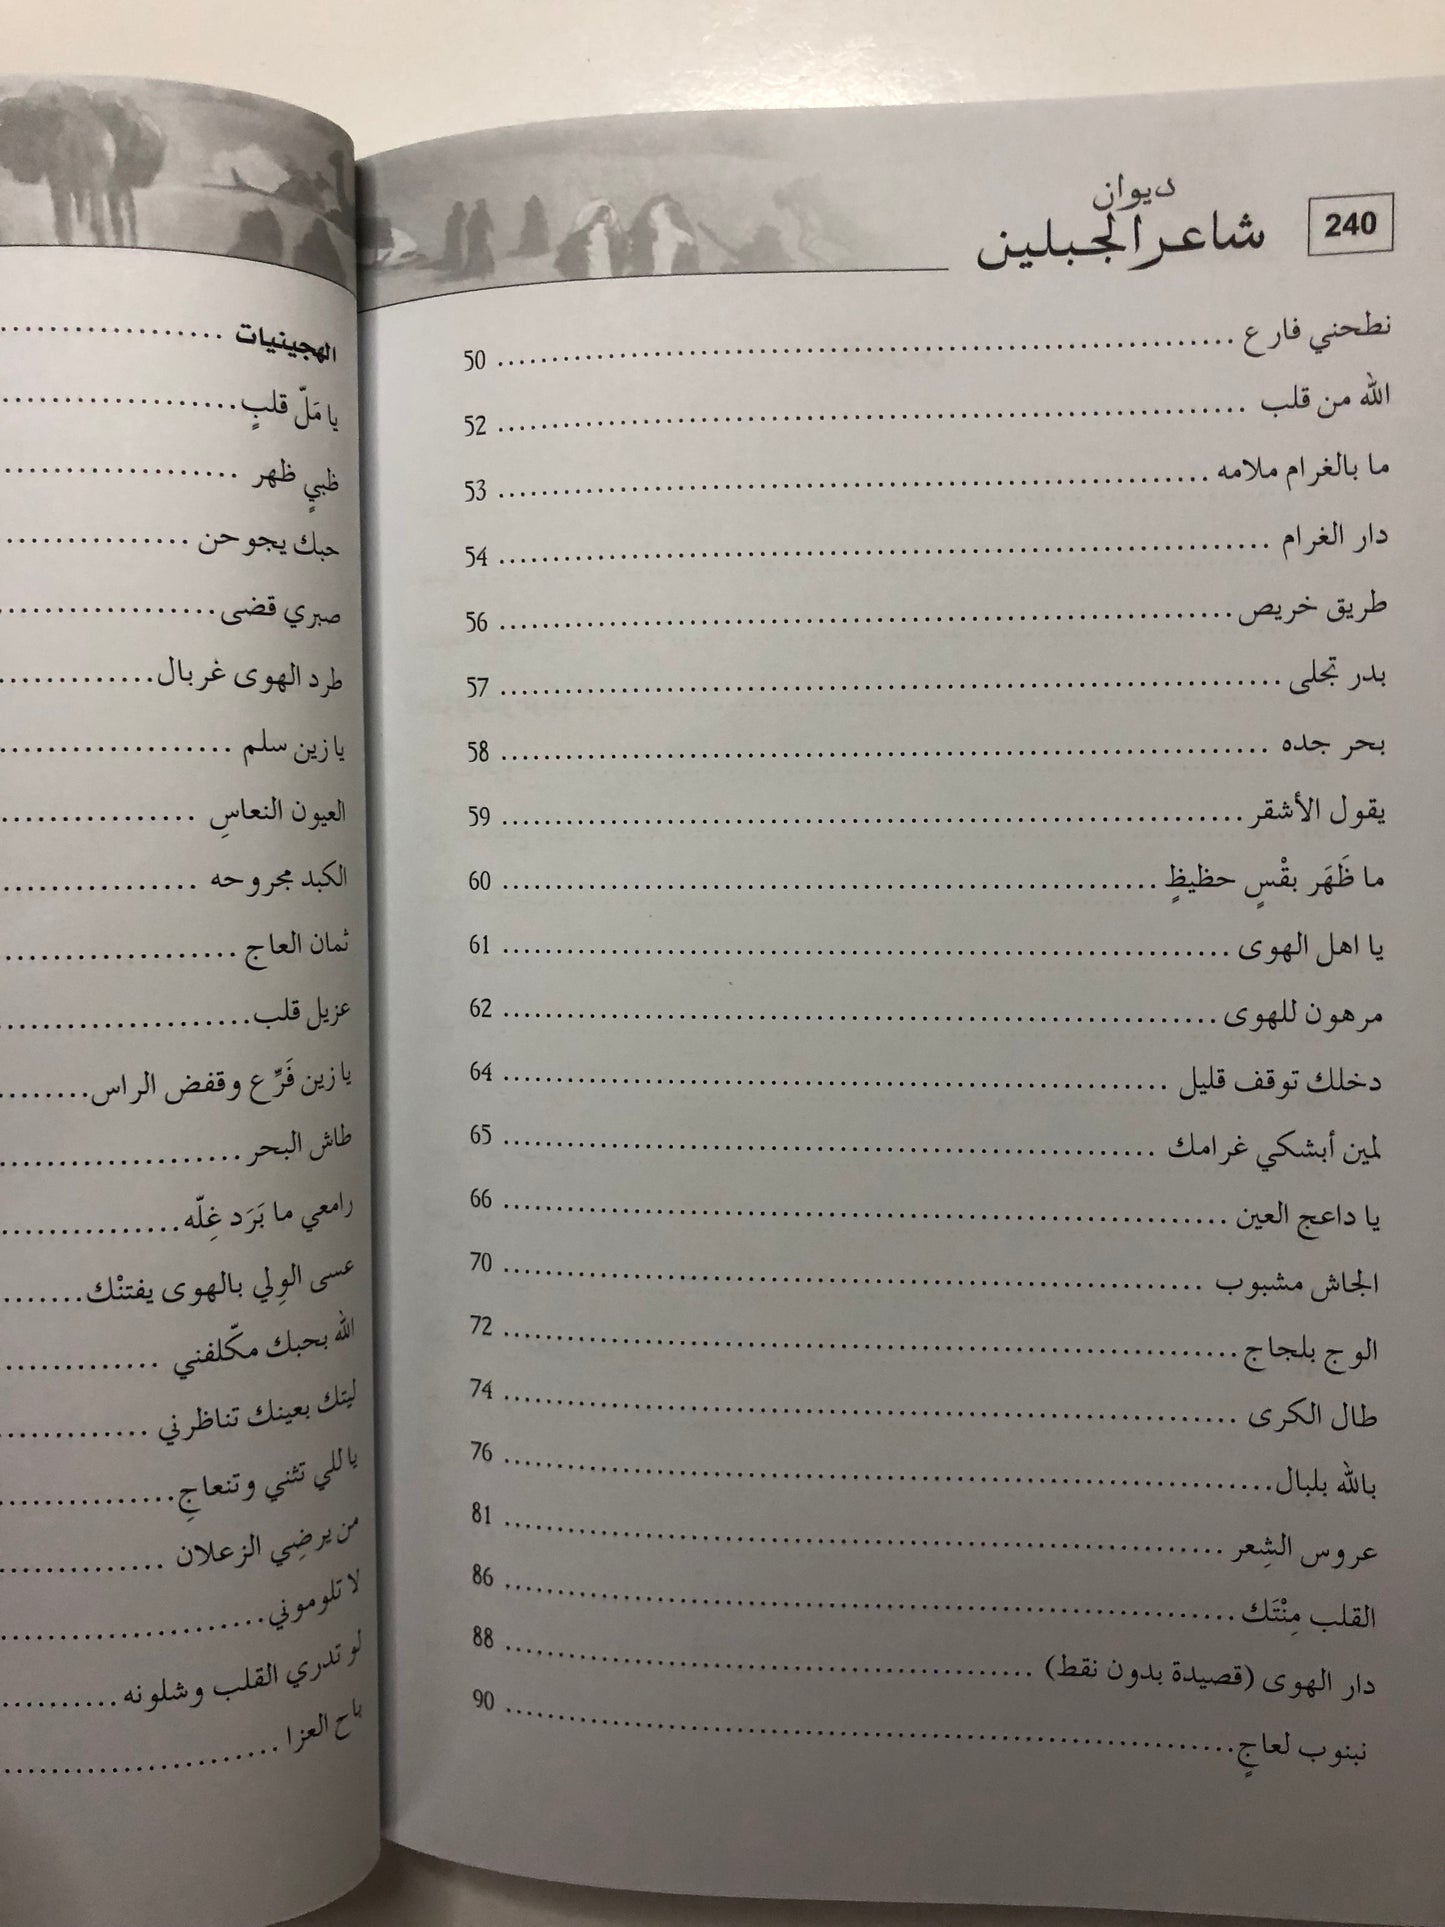 240
ديوان
شاعر الجبلين
نطحني فارع ........ 50
الله من قلب ........ 52
ما بالغرام ملامه ........ 53
دار الغرام ........ 54
طريق خريص ........ 56
بدر تجلى ........ 57
بحر جده ........ 58
يقول الأشقر ........ 59
ما ظَهَر بقْسٍ حظيظٍ ........ 60
يا اهل الهوى ........ 61
مرهون للهوى ........ 62
دخلك توقف قليل ........ 64
لمين أبشكي غرامك ........ 65
يا داعج العين ........ 66
الجاش مشبوب ........ 70
الوج بلجاج ........ 72
طال الكرى ........ 74
بالله بلبال ........ 76
عروس الشِعر ........ 81
القلب مِنْتَك ........ 86
دار الهوى (قصيدة بدون نقط) ........ 88
نبنوب لعاجٍ ........ 90
الهجينيات ........
يا مَلّ قلبٍ ........
ظبيٍ ظهر ........
حبك يجوحن ........
صبري قضى ........
طرد الهوى غربال ........
يا زين سلم ........
العيون النعاسِ ........
الكبد مجروحه ........
ثمان العاج ........
عزيل قلب ........
يا زين فَرِّع وقفض الراس ........
طاش البحر ........
رامعي ما بَرَد غِلّه ........
عسى الوِلي بالهوى يفتنْك ........
الله بحبك مكّلفني ........
ليتك بعينك تناظرني ........
ياللي تثني وتنعاجِ ........
من يرضِي الزعلان ........
لا تلوموني ........
لو تدري القلب وشلونه ........
باح العزا ........